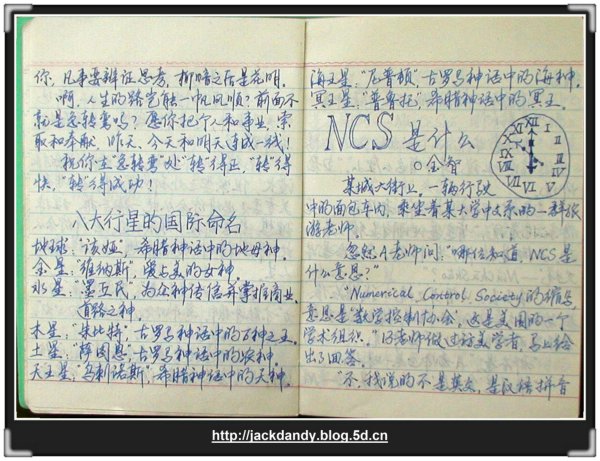 你，凡事要辨证思考，柳暗之后是花明。
啊，人生的路岂能一帆风顺？前面不
就是急转弯吗？愿你把个人和事业，索
取和奉献，昨天、今天和明天连成一线！
祝你在“急转弯”处“转”得正，“转”得
快，“转”得成功！
八大行星的国际命名
地球：“该娅”，希腊神话中的地母神。
金星：“维纳斯”，爱与美的女神。
水星：“墨丘民”，为众神传信并掌握商业、
道路之神。
木星：“朱比特”，古罗马神话中的万神之王。
土星：“萨图恩”，古罗马神话中的农神。
天王星：“乌刺诺斯”，希腊神话中的天神。
海王星：“尼普顿”，古罗马神话中的海神。
冥王星：“普鲁托”，希腊神话中的冥王。
NCS是什么
○金智
XII I II III IV V VI VII VIII IX X XI
某城大街上，一辆行驶
中的面包车内，乘坐着某大学中文系的一群旅
游老师。
忽然A老师问：“哪位知道，NCS是
什么意思？”
“Numerical Control Society的缩写，
意思是‘数学控制协会’，这是美国的一个
学术组织。”B老师做过访美学者，马上给
出了回答。
“不，我说的不是英文，是汉语拼音
http://jackdandy.blog.5d.cn